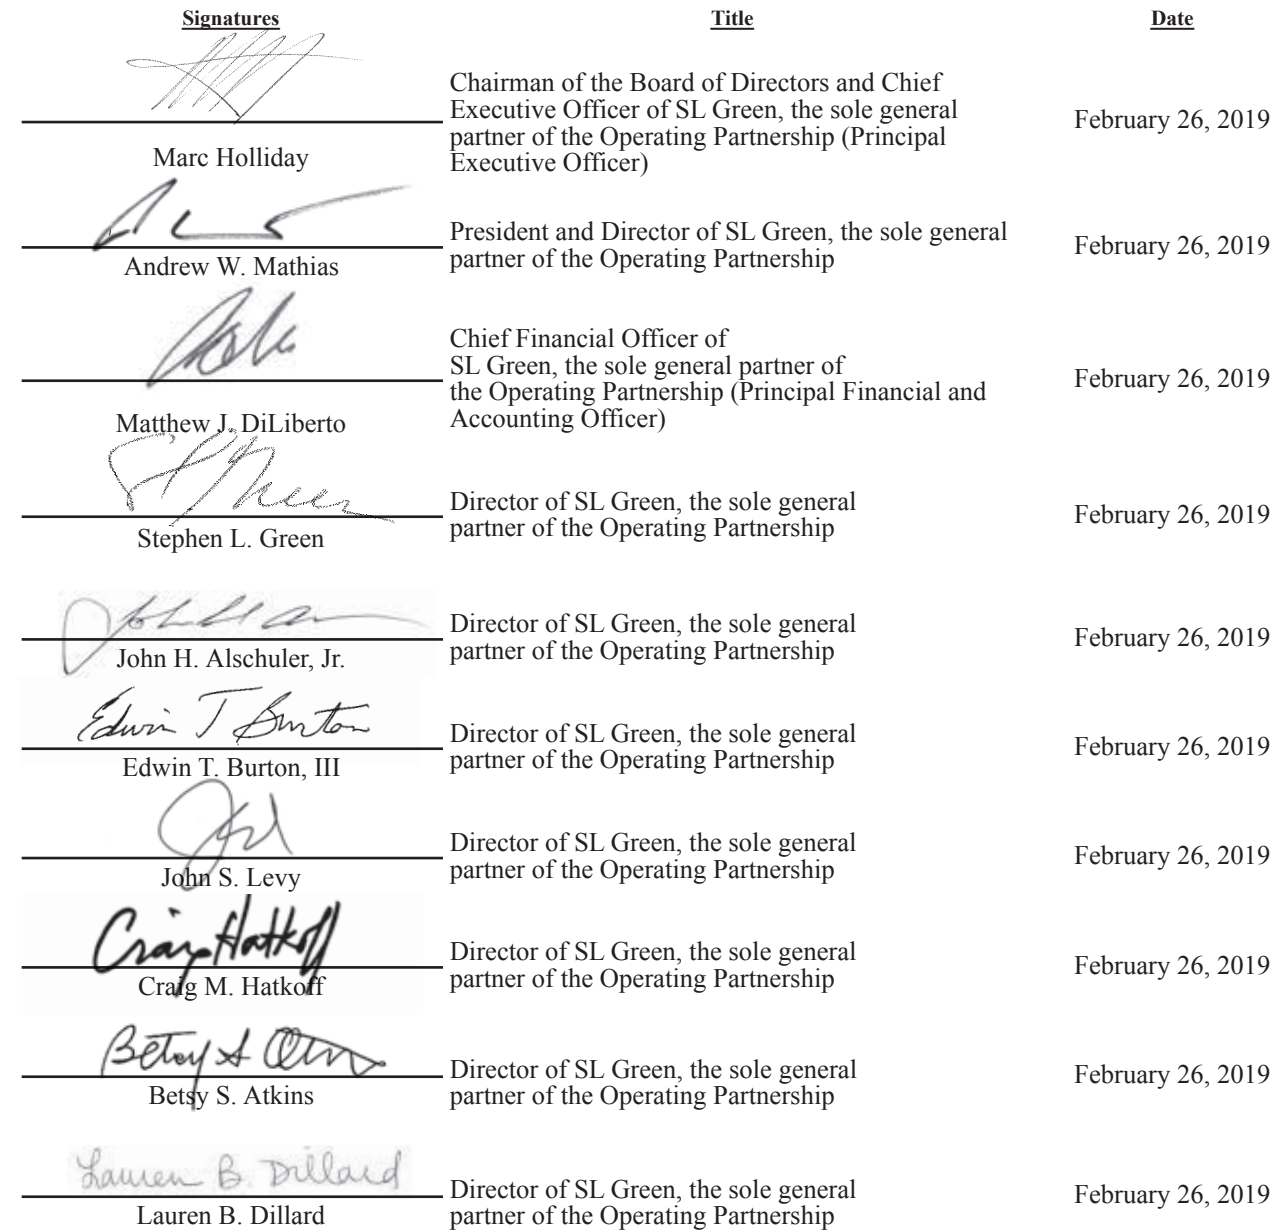 Signatures Title Date
Chairman of the Board of Directors and Chief
Executive Officer of SL Green, the sole general
partner of the Operating Partnership (Principal
Executive Officer)
February 26, 2019
Marc Holliday
President and Director of SL Green, the sole general
partner of the Operating Partnership
February 26, 2019
Andrew W. Mathias
Chief Financial Officer of
SL Green, the sole general partner of
the Operating Partnership (Principal Financial and
Accounting Officer)
February 26, 2019
Matthew J. DiLiberto
St Green
Director of SL Green, the sole general
partner of the Operating Partnership
February 26, 2019
Stephen L. Green
John
Director of SL Green, the sole general
partner of the Operating Partnership
February 26, 2019
John H. Alschuler, Jr.
Edwin T Burton
Director of SL Green, the sole general
partner of the Operating Partnership
February 26, 2019
Edwin T. Burton, III
Director of SL Green, the sole general
partner of the Operating Partnership
February 26, 2019
John S. Levy
Craig Hatkoff
Director of SL Green, the sole general
partner of the Operating Partnership
February 26, 2019
Craig M. Hatkoff
Betsy S
Director of SL Green, the sole general
partner of the Operating Partnership
February 26, 2019
Betsy S. Atkins
Lauren B. Dillard
Director of SL Green, the sole general
partner of the Operating Partnership
February 26, 2019
Lauren B. Dillard